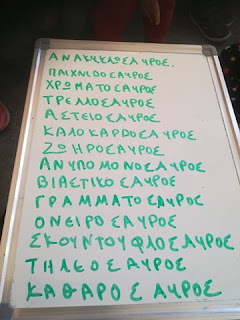 ΑΝΑΚΥΚΛΩΣΑΥΡΟΣ.
ΠΑΙΧΝΙΔΟΣΑΥΡΟΣ
ΧΡΩΜΑΤΟΣΑΥΡΟΣ
ΤΡΕΛΛΟΣΑΥΡΟΣ
ΑΣΤΕΙΟΣΑΥΡΟΣ
ΚΑΛΟΚΑΡΔΟΣΑΥΡΟΣ
ΖΩΗΡΟΣΑΥΡΟΣ
ΑΝΥΠΟΜΟΝΟΣΑΥΡΟΣ
ΒΙΑΣΤΙΚΟΣΑΥΡΟΣ
ΓΡΑΜΜΑΤΟΣΑΥΡΟΣ
ΟΝΕΙΡΟΣΑΥΡΟΣ
ΣΚΟΥΝΤΟΥΦΛΟΣΑΥΡΟΣ
ΤΗΛΕΟΣΑΥΡΟΣ
ΚΑΘΑΡΟΣΑΥΡΟΣ